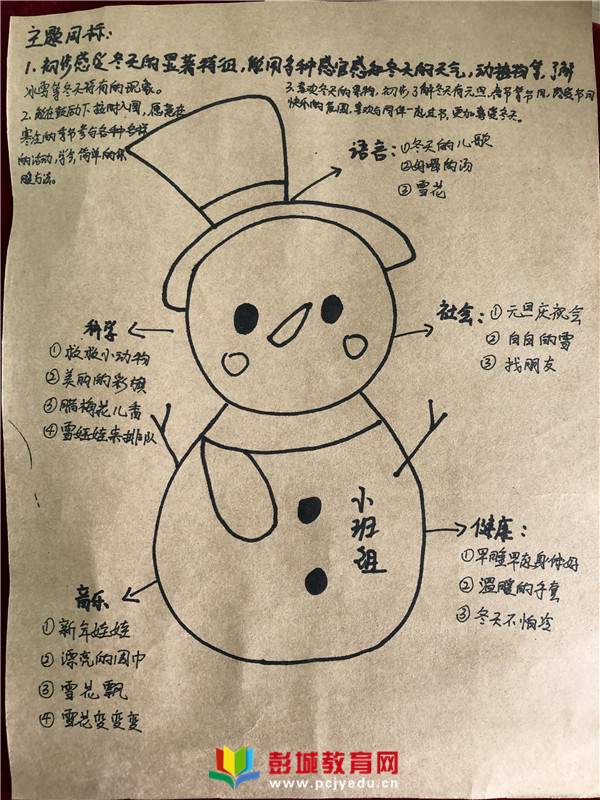 主题目标:
1.初步感受冬天的显著特征,能用多种感官感知冬天的天气,动植物等,了解
冰雪等冬天特有的现象。
2.能在鼓励下按时入园,愿意在
寒冷的季节参与各种各样
的活动,学会简单的保
暖方法。
3.喜欢冬天的事物,初步了解冬天有元旦、春节等节日,感受节日
快乐的氛围,喜欢与同伴一起过节,更加喜爱冬天。
语言:①冬天的儿歌
②好喝的汤
③雪花
科学
①救救小动物
②美丽的彩旗
③腊梅花儿香
④雪娃娃来排队
社会:①元旦庆祝会
②白白的雪
③找朋友
小班组
健康:
①早睡早起身体好
②温暖的手套
③冬天不怕冷
音乐
①新年娃娃
②漂亮的围巾
③雪花飘
④雪花变变变
彭城教育网
www.pcjyedu.cn